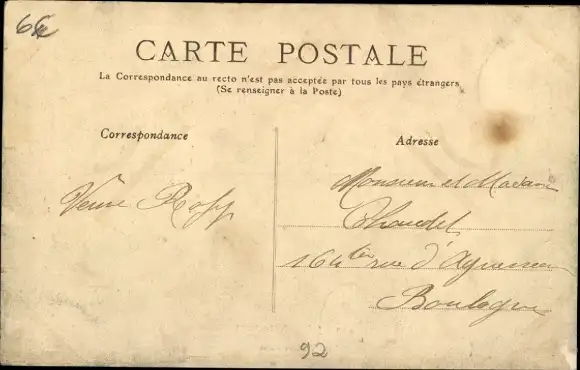 CARTE POSTALE
La Correspondance au recto n'est pas acceptée par tous les pays étrangers
(Se renseigner à la Poste)
Correspondance
Adresse
Veuve
Monsieur et Madame
164 ter rue d'
Boulogne
92